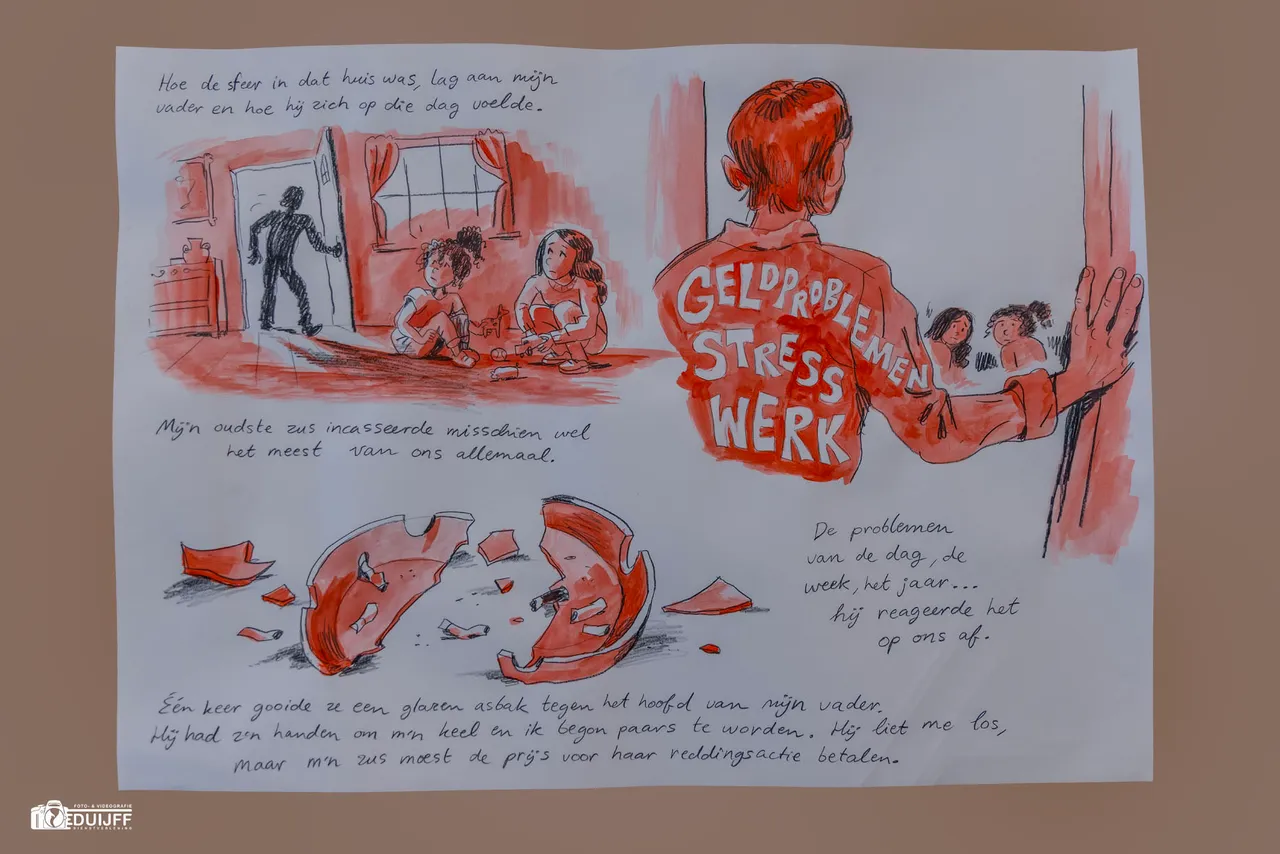 Hoe de sfeer in dat huis was, lag aan mijn
vader en hoe hij zich op die dag voelde.
GELDPROBLEMEN
STRESS
WERK
Mijn oudste zus incasseerde misschien wel
het meest van ons allemaal.
De problemen
van de dag, de
week, het jaar...
hij reageerde het
op ons af.
Één keer gooide ze een glazen asbak tegen het hoofd van mijn vader.
Hij had z'n handen om m'n keel en ik begon paars te worden. Hij liet me los,
maar m'n zus moest de prijs voor haar reddingsactie betalen.
FOTO- & VIDEOGRAFIE
EDUIJFF
DIENSTVERLENING